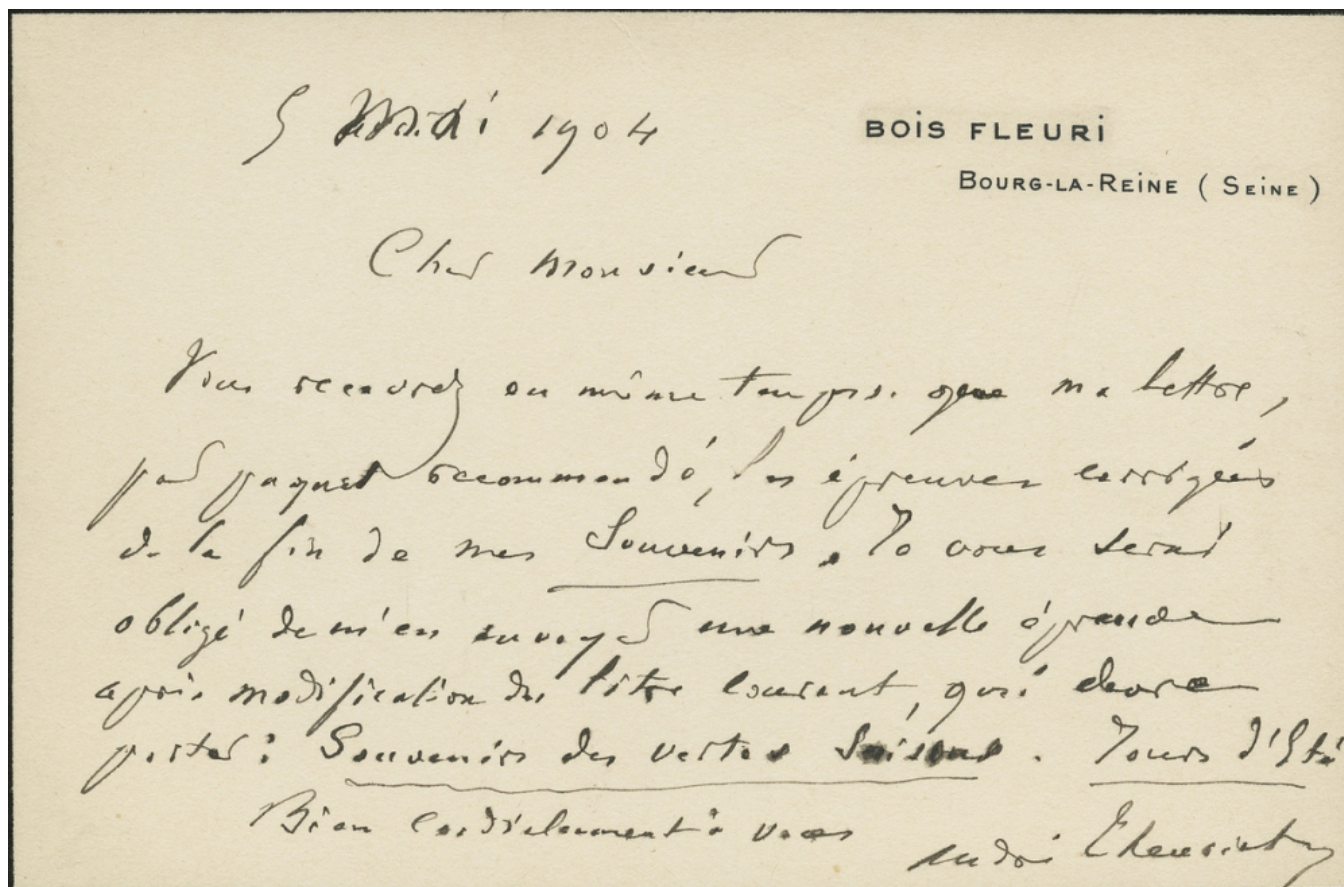 5 1904
BOIS FLEURI
BOURG-LA-REINE ( SEINE )
Cher Monsieur
Vous recevrez en même temps que ma lettre,
par paquet recommandé, les épreuves corrigées
de la fin de mes Souvenirs. Je vous serai
obligé de m'en envoyer une nouvelle épreuve
après modification du titre courant, qui devra
porter : Souvenirs des vertes saisons. Jours d'Eté
Bien cordialement à vous
André Theuriet